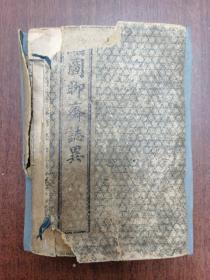 圖聊齋誌異